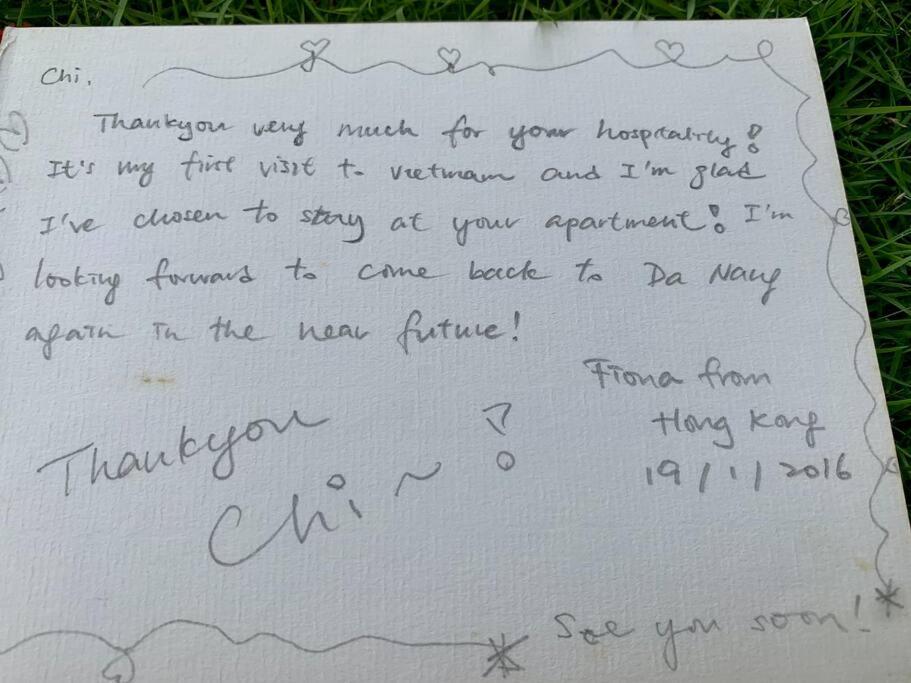 Chi,
Thankyou very much for your hospitality!
It's my first visit to Vietnam and I'm glad
I've chosen to stay at your apartment! I'm
looking forward to come back to Da Nang
again in the near future!
Fiona from
Hong Kong
19/1/2016
Thankyou
Chi ~ !
See you soon!